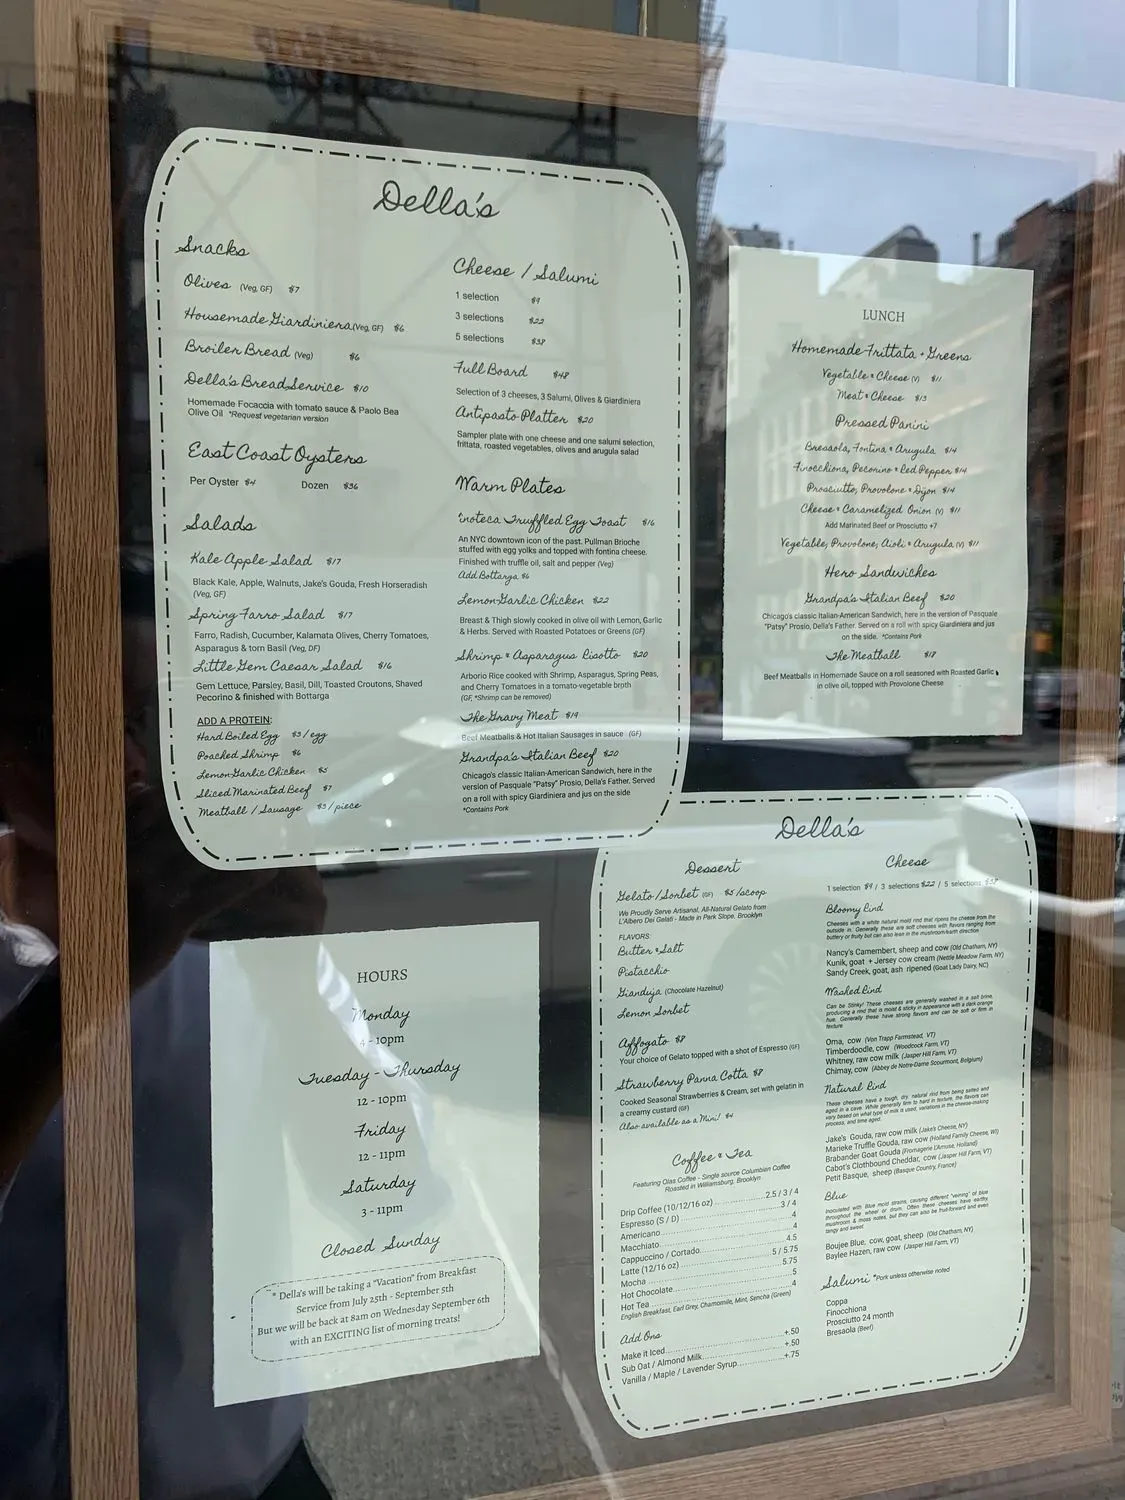 Della's
Snacks
Olives (Veg, GF) $7
Housemade Giardiniera (Veg, GF) $6
Broiler Bread (Veg) $6
Della's Bread Service $10
Homemade Focaccia with tomato sauce & Paolo Bea
Olive Oil *Request vegetarian version
East Coast Oysters
Per Oyster $4 Dozen $36
Salads
Kale Apple Salad $17
Black Kale, Apple, Walnuts, Jake's Gouda, Fresh Horseradish
(Veg, GF)
Spring Farro Salad $17
Farro, Radish, Cucumber, Kalamata Olives, Cherry Tomatoes,
Asparagus & torn Basil (Veg, DF)
Little Gem Caesar Salad $16
Gem Lettuce, Parsley, Basil, Dill, Toasted Croutons, Shaved
Pecorino & finished with Bottarga
ADD A PROTEIN:
Hard Boiled Egg $3/egg
Poached Shrimp $6
Lemon-Garlic Chicken $5
Sliced Marinated Beef $7
Meatball / Sausage $3/piece
Cheese / Salumi
1 selection $9
3 selections $22
5 selections $38
Full Board $48
Selection of 3 cheeses, 3 Salumi, Olives & Giardiniera
Antipasto Platter $20
Sampler plate with one cheese and one salumi selection,
frittata, roasted vegetables, olives and arugula salad
Warm Plates
'inoteca Truffled Egg Toast $16
An NYC downtown icon of the past. Pullman Brioche
stuffed with egg yolks and topped with fontina cheese.
Finished with truffle oil, salt and pepper (Veg)
Add Bottarga $6
Lemon-Garlic Chicken $22
Breast & Thigh slowly cooked in olive oil with Lemon, Garlic
& Herbs. Served with Roasted Potatoes or Greens (GF)
Shrimp & Asparagus Risotto $20
Arborio Rice cooked with Shrimp, Asparagus, Spring Peas,
and Cherry Tomatoes in a tomato-vegetable broth
(GF, *Shrimp can be removed)
The Gravy Meat $19
Beef Meatballs & Hot Italian Sausages in sauce (GF)
Grandpa's Italian Beef $20
Chicago's classic Italian-American Sandwich, here in the
version of Pasquale "Patsy" Prosio, Della's Father. Served
on a roll with spicy Giardiniera and jus on the side
*Contains Pork
LUNCH
Homemade Frittata + Greens
Vegetable & Cheese (V) $11
Meat & Cheese $13
Pressed Panini
Bresaola, Fontina & Arugula $14
Finocchiona, Pecorino & Red Pepper $14
Prosciutto, Provolone & Dijon $14
Cheese & Caramelized Onion (V) $11
Add Marinated Beef or Prosciutto +7
Vegetable, Provolone, Aioli & Arugula (V) $11
Hero Sandwiches
Grandpa's Italian Beef $20
Chicago's classic Italian-American Sandwich, here in the version of Pasquale
"Patsy" Prosio, Della's Father. Served on a roll with spicy Giardiniera and jus
on the side. *Contains Pork
The Meatball $18
Beef Meatballs in Homemade Sauce on a roll seasoned with Roasted Garlic
in olive oil, topped with Provolone Cheese
HOURS
Monday
4 - 10pm
Tuesday - Thursday
12 - 10pm
Friday
12 - 11pm
Saturday
3 - 11pm
Closed Sunday
* Della's will be taking a "Vacation" from Breakfast
Service from July 25th - September 5th
But we will be back at 8am on Wednesday September 6th
with an EXCITING list of morning treats!
Della's
Dessert
Gelato/Sorbet (GF) $5/scoop
We Proudly Serve Artisanal, All-Natural Gelato from
L'Albero Dei Gelati - Made in Park Slope, Brooklyn
FLAVORS:
Butter & Salt
Pistacchio
Gianduja (Chocolate Hazelnut)
Lemon Sorbet
Affogato $8
Your choice of Gelato topped with a shot of Espresso (GF)
Strawberry Panna Cotta $8
Cooked Seasonal Strawberries & Cream, set with gelatin in
a creamy custard (GF)
Also available as a Mini! $4
Coffee & Tea
Featuring Olas Coffee - Single source Columbian Coffee
Roasted in Williamsburg, Brooklyn
Drip Coffee (10/12/16 oz) 2.5 / 3 / 4
Espresso (S / D) 3 / 4
Americano 4
Macchiato 4
Cappuccino / Cortado 4.5
Latte (12/16 oz) 5 / 5.75
Mocha 5.75
Hot Chocolate 5
Hot Tea 4
English Breakfast, Earl Grey, Chamomile, Mint, Sencha (Green)
Add Ons
Make it Iced +.50
Sub Oat / Almond Milk +.50
Vanilla / Maple / Lavender Syrup +.75
Cheese
1 selection $9 / 3 selections $22 / 5 selections $38
Bloomy Rind
Cheeses with a white natural mold rind that ripens the cheese from the
outside in. Generally these are soft cheeses with flavors ranging from
buttery or fruity but can also lean in the mushroom/earth direction
Nancy's Camembert, sheep and cow (Old Chatham, NY)
Kunik, goat + Jersey cow cream (Nettle Meadow Farm, NY)
Sandy Creek, goat, ash ripened (Goat Lady Dairy, NC)
Washed Rind
Can be Stinky! These cheeses are generally washed in a salt brine,
producing a rind that is moist & sticky in appearance with a dark orange
hue. Generally these have strong flavors and can be soft or firm in
texture
Oma, cow (Von Trapp Farmstead, VT)
Timberdoodle, cow (Woodcock Farm, VT)
Whitney, raw cow milk (Jasper Hill Farm, VT)
Chimay, cow (Abbey de Notre-Dame Scourmont, Belgium)
Natural Rind
These cheeses have a tough, dry, natural rind from being salted and
aged in a cave. While generally firm to hard in texture, the flavors can
vary based on what type of milk is used, variations in the cheese-making
process, and time aged.
Jake's Gouda, raw cow milk (Jake's Cheese, NY)
Marieke Truffle Gouda, raw cow (Holland Family Cheese, WI)
Brabander Goat Gouda (Fromagerie L'Amuse, Holland)
Cabot's Clothbound Cheddar, cow (Jasper Hill Farm, VT)
Petit Basque, sheep (Basque Country, France)
Blue
Inoculated with Blue mold strains, causing different "veining" of blue
throughout the wheel or drum. Often these cheeses have earthy,
mushroom & moss notes, but they can also be fruit-forward and even
tangy and sweet.
Boujee Blue, cow, goat, sheep (Old Chatham, NY)
Baylee Hazen, raw cow (Jasper Hill Farm, VT)
Salumi *Pork unless otherwise noted
Coppa
Finocchiona
Prosciutto 24 month
Bresaola (Beef)